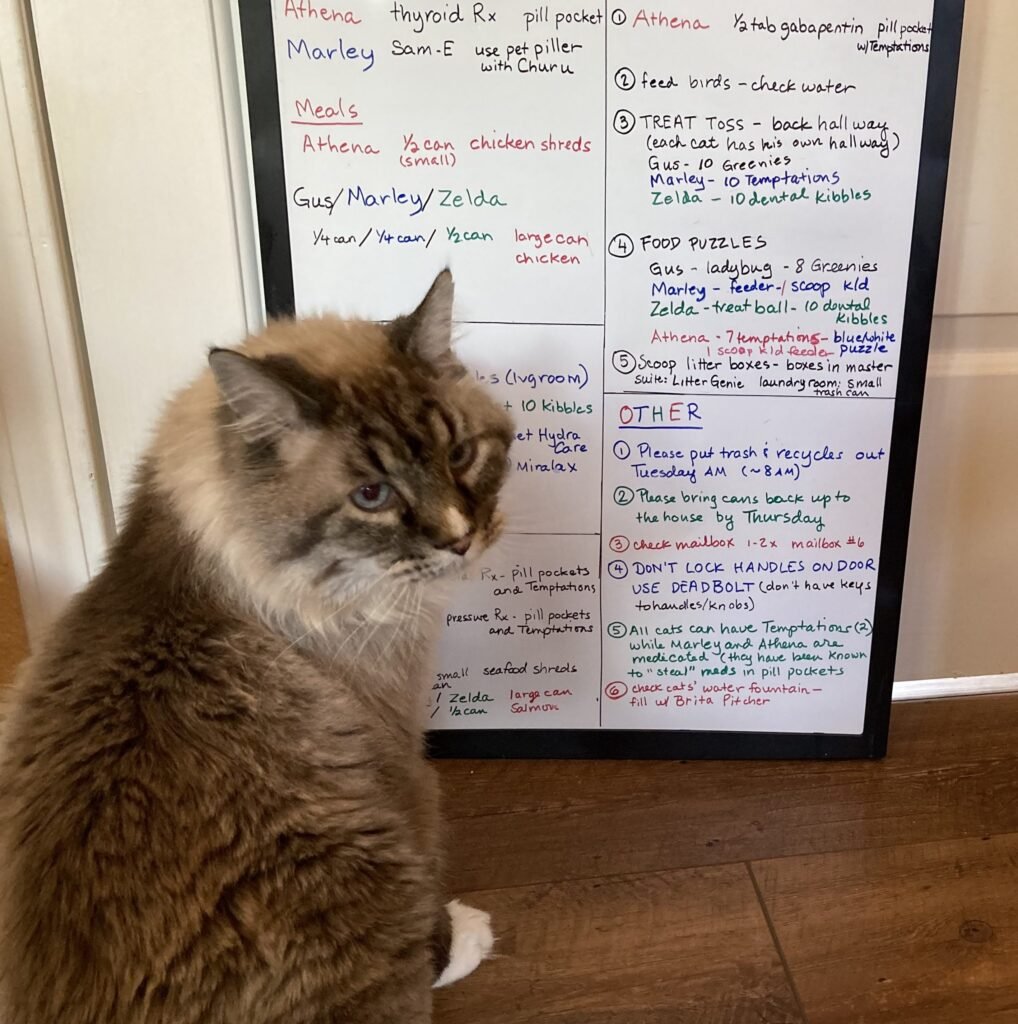 Athena thyroid Rx pill pocket
Marley Sam-E use pet piller
with Churu
Meals
Athena 1/2 can chicken shreds
(small)
Gus/Marley/Zelda
1/4 can/1/4 can/ 1/2 can large can
chicken
(lvgroom)
+ 10 kibbles
Hydra
Care
Miralax
Rx - pill pockets
and Temptations
pressure Rx - pill pockets
and Temptations
small seafood shreds
/ Zelda large can
/ 1/2 can Salmon
① Athena 1/2 tab gabapentin pill pocket
w/Temptations
② feed birds - check water
③ TREAT TOSS - back hallway
(each cat has his own hallway)
Gus - 10 Greenies
Marley - 10 Temptations
Zelda - 10 dental kibbles
④ FOOD PUZZLES
Gus - ladybug - 8 Greenies
Marley - feeder - 1 scoop k/d
Zelda - treat ball - 10 dental
kibbles
Athena - 7 temptations - blue/white
1 scoop k/d feeder puzzle
⑤ Scoop litter boxes - boxes in master
suite: Litter Genie laundry room: small
trash can
OTHER
① Please put trash & recycles out
Tuesday AM (~8 AM)
② Please bring cans back up to
the house by Thursday
③ check mailbox 1-2x mailbox #6
④ DON'T LOCK HANDLES ON DOOR
USE DEADBOLT (don't have keys
to handles/knobs)
⑤ All cats can have Temptations (2)
while Marley and Athena are
medicated (they have been known
to "steal" meds in pill pockets
⑥ check cats' water fountain -
fill w/ Brita Pitcher